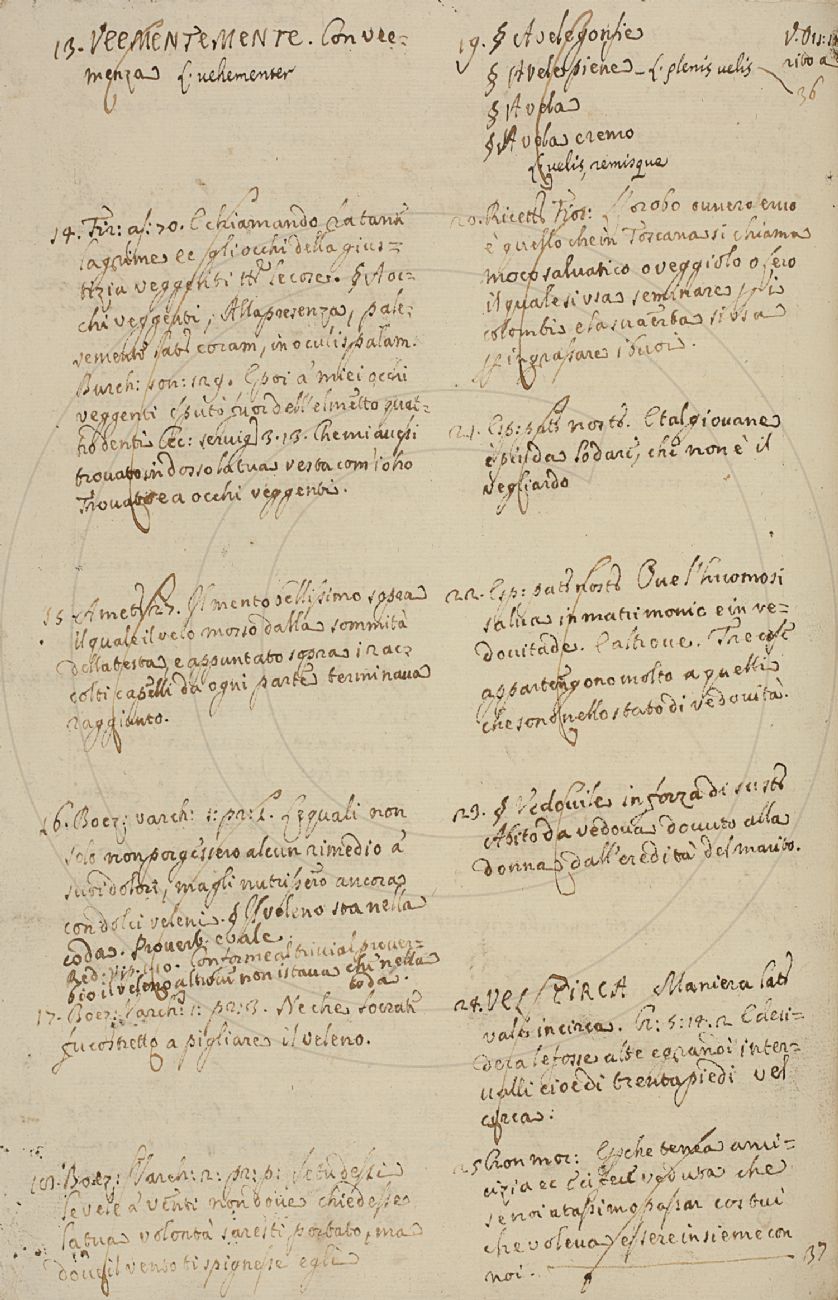 13. VEEMENTEMENTE. Con vee=
menza L. vehementer
14. Fir: as: 70. E chiamando
lagrime ec gli occhi della gius=
tizia veggenti le cose. § A oc=
chi veggenti, Alla presenza, pale=
coram, in oculis, palam.
Burch: son: 129. E poi a' miei occhi
veggenti sputò fuor dell'elmetto quat=
denti Cec: servig 3. 13. Che mi avessi
trovato indosso la tua vesta com'io ho
Trovato te a occhi veggenti.
15. Amet. 27. Il mento bellissimo sopra
il quale il velo mosso dalla sommità
della testa, e appuntato sopra i rac=
colti capelli da ogni parte terminava
raggiunto.
16. Boez: varch: 1: pr: 1. Le quali non
solo non porgessero alcun rimedio a'
suoi dolori, ma gli nutrissero ancora
con dolci veleni. § Il veleno sta nella
coda. Proverb: e vale
Red. Conforme al trivial prover=
bio il veleno altrove non istava che nella
coda.
17. Boez: Varch: 1: pr: 3. Ne che Socrate
fu costretto a pigliare il veleno.
18. Boez: Varch: 2: pr: p: Se tu dessi
le vele a' venti non dove chiedesse
la tua volontà saresti portato, ma
dove il vento ti spignesse egli
19. § A vele gonfie
§ A vele piene - L. plenis velis
§ A vela
§ A vela e remo
L. velis, remisque
V. Dis: 1
ribo a
36
20. Ricett. Fior: L'orobo ovvero ervo
è quello che in Toscana si chiama
moco salvatico o veggiolo o lero
il quale si usa seminare p. li
colombi e la sua erba si usa
p. ingrassare i buoi.
21. Esp: nost. E tal giovane
è più da lodare, che non è il
vegliardo
22. Esp: nost. Ove l'huomo si
salva in matrimonio e in ve=
dovitade. E altrove. Tre cose
appartengono molto a quelli
che sono nello stato di vedovità.
23. § Vedovile in forza di sust.
Abito da vedova dovuto alla
donna, dall'eredità del marito.
24. VEL CIRCA Maniera
vale in circa. Cr: 5: 19. 2 E desi=
dera le fosse alte e grandi inter=
valli cioè di trenta piedi vel
circa:
25. Cron mor: E p. che tenea ami=
cizia ec Ci fece veduta che
se noi atassimo passar costui
che voleva essere insieme con
noi.
37